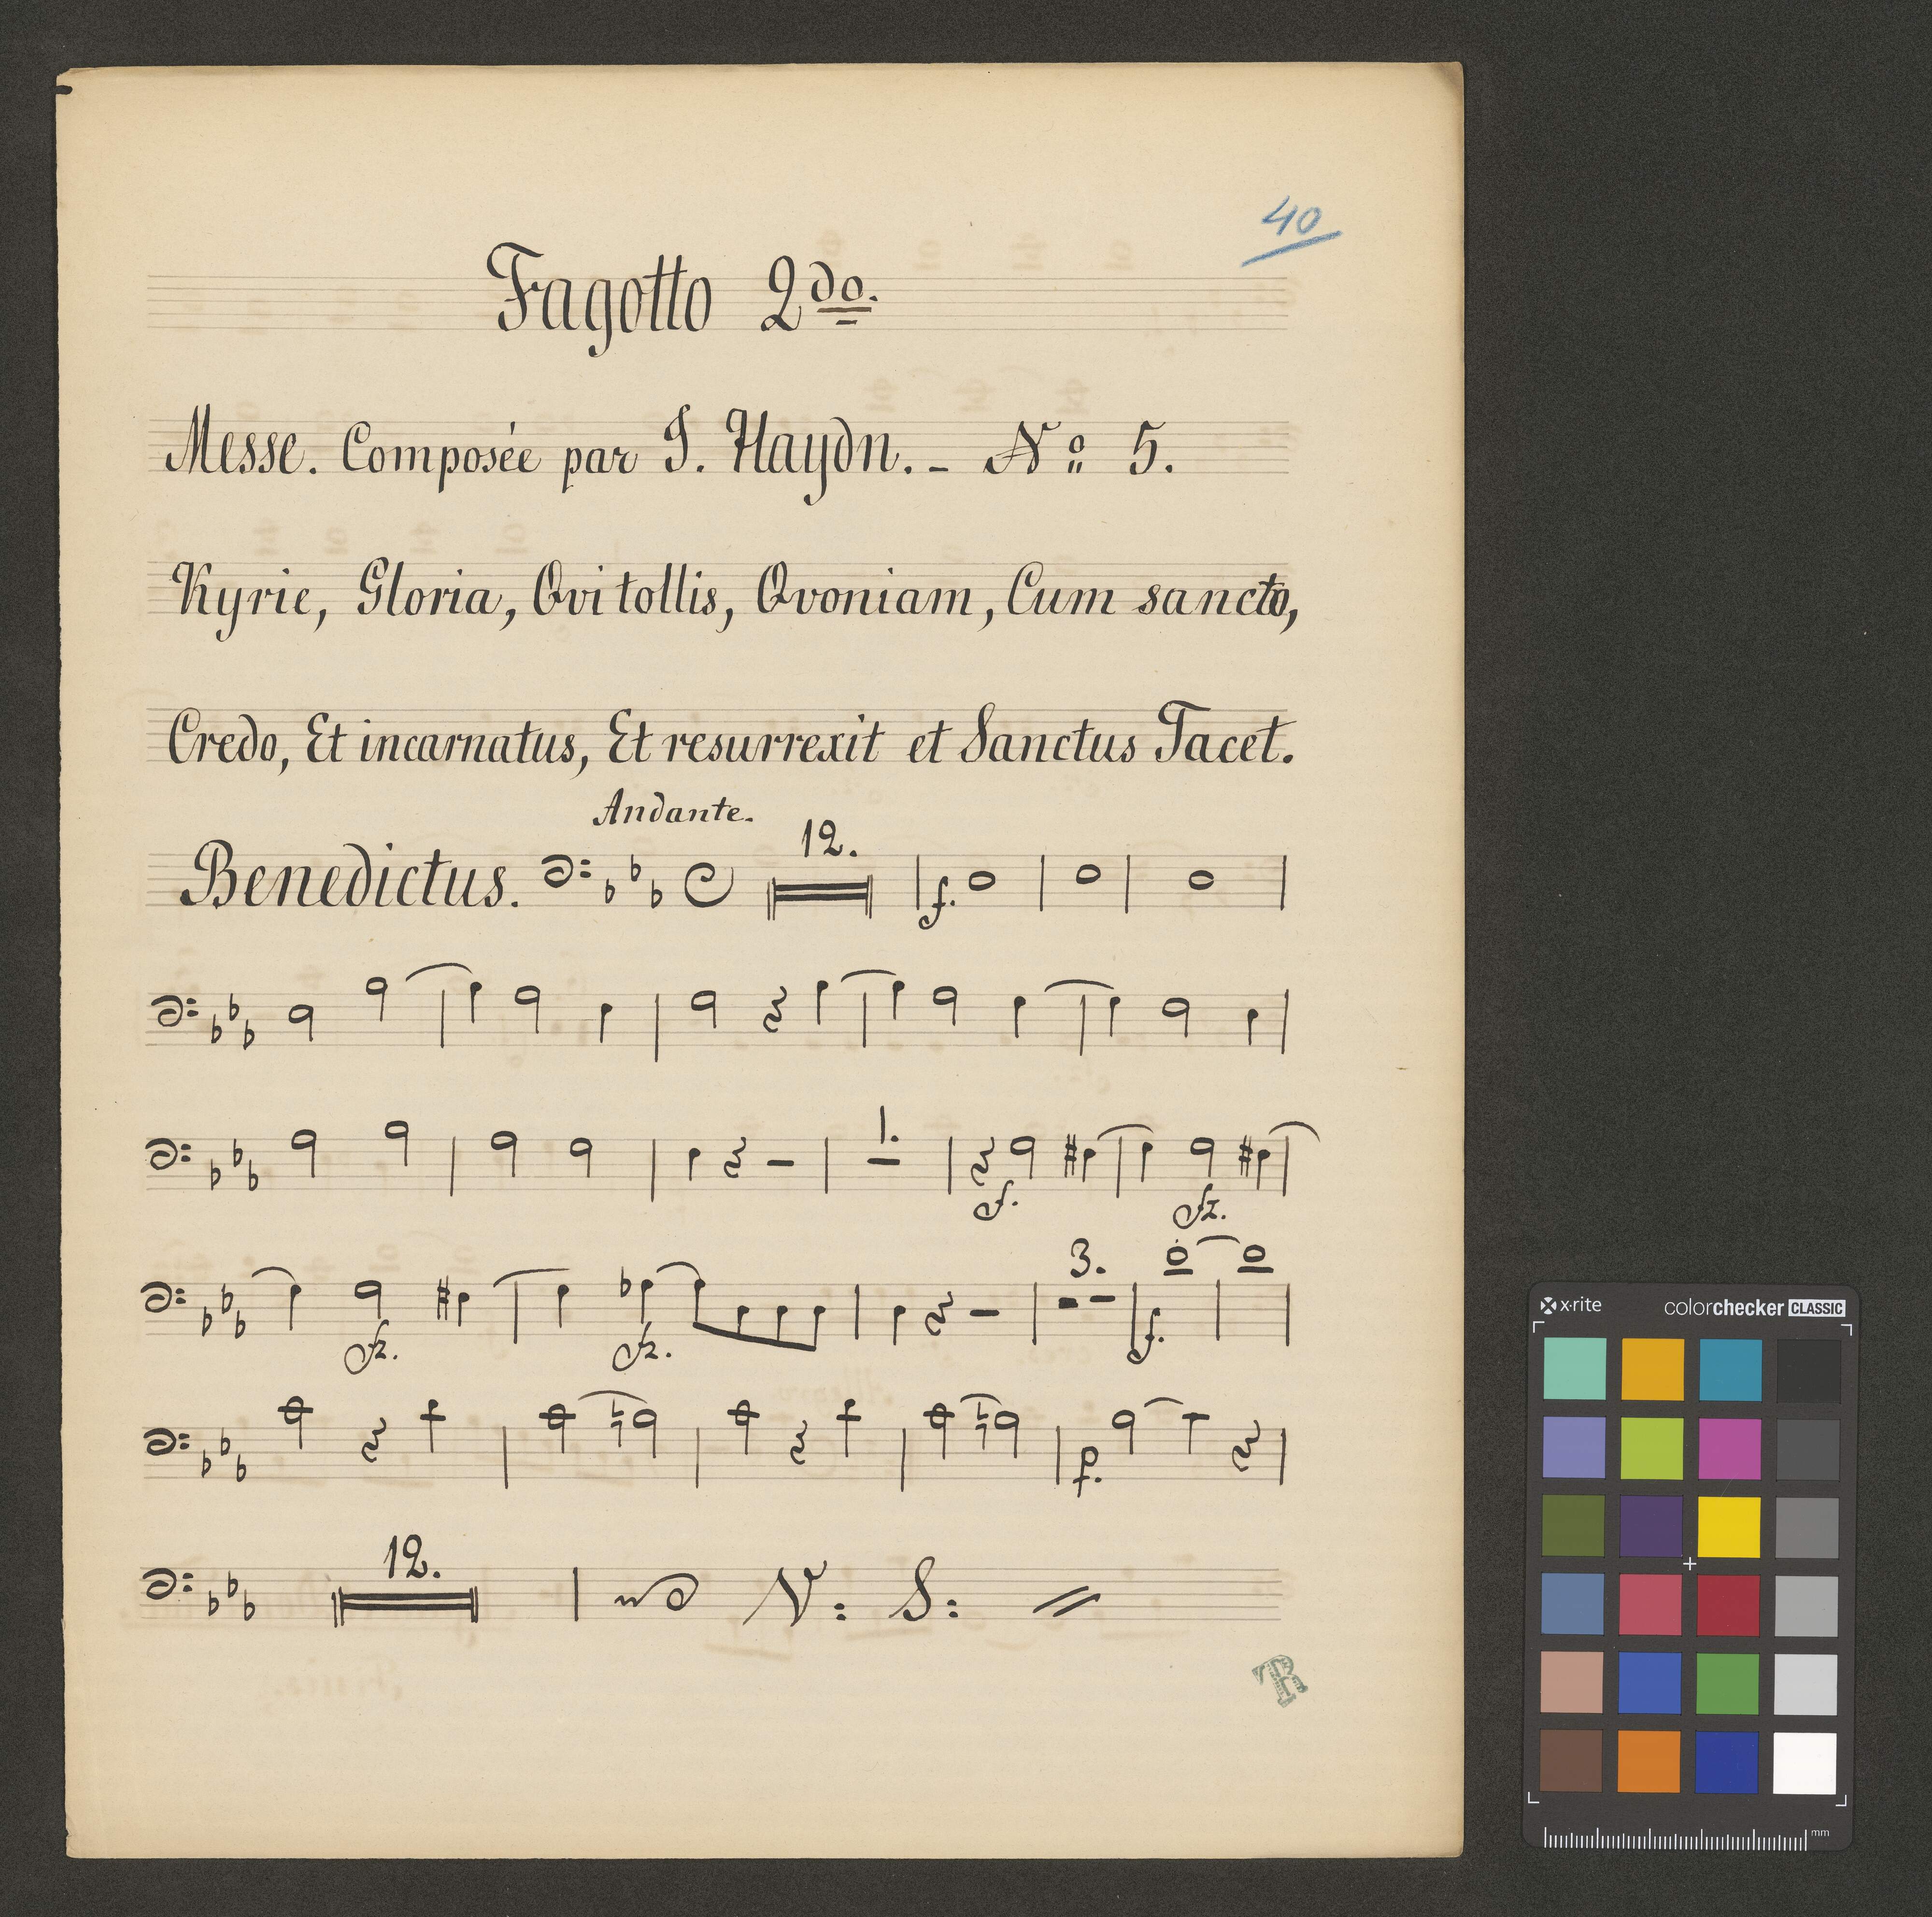 40
Fagotto 2do.
Messe. Composée par J. Haydn. - No 5.
Kyrie, Gloria, Qvi tollis, Qvoniam, Cum sancto,
Credo, Et incarnatus, Et resurrexit et Sanctus Tacet.
Andante.
12.
Benedictus.
f.
1.
f. fz.
3.
fz. fz. f.
p.
12.
V: S:
x·rite colorchecker CLASSIC
mm